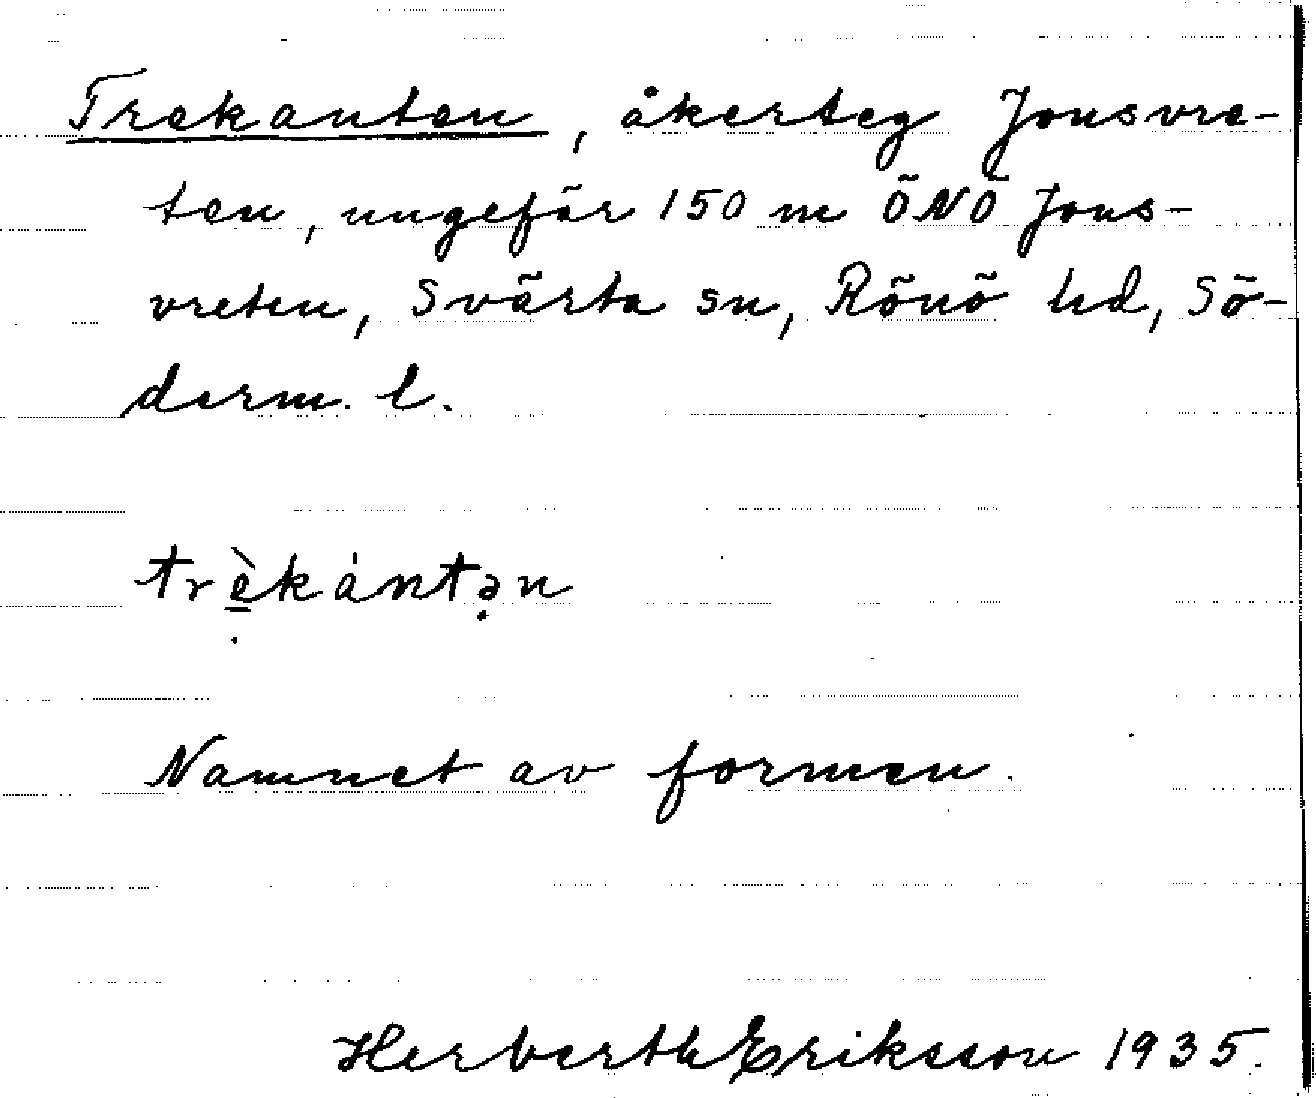 Trekanten, åkerteg Jonsvre-
ten, ungefär 150 m ÖNÖ Jons-
vreten, Svärta sn, Rönö hd, Sö-
derm. l.
trè̠kán̍tə̣n
Namnet av formen.
Herberth Eriksson 1935.